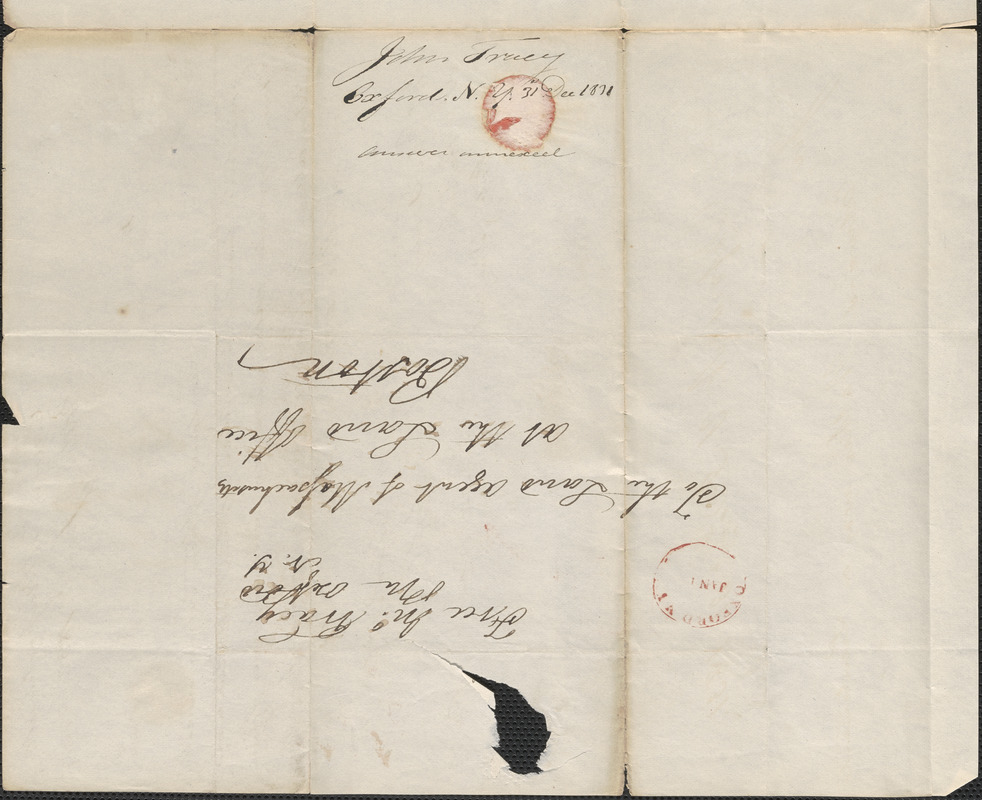 John Tracy
Oxford. N. Y. 31 Dec 1831
answer annexed
Free Jno. Tracy
PM Oxford
N. Y.
To the Land agent of Massachusetts
at the Land Office
Boston
JAN 1